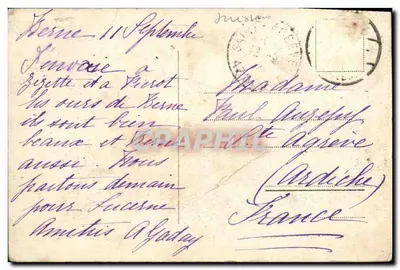 Suisse
Berne 11 Septembre
J'envoie à
Zizette et à Pierrot
les ours de Berne
ils sont bien
beaux et
aussi Nous
partons demain
pour Lucerne
Amitiés A
Madame
Paul
Ste Agrève
(Ardèche)
France